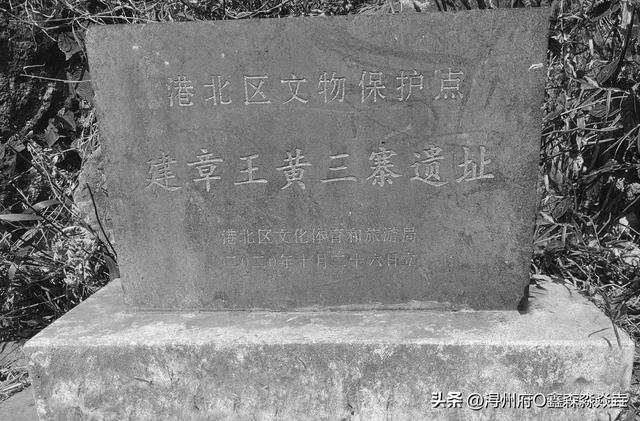 港北区文物保护点
建章王黄三寨遗址
港北区文化体育和旅游局
二〇二〇年十月二十六日立
头条 @浔州府O鑫森淼焱垚